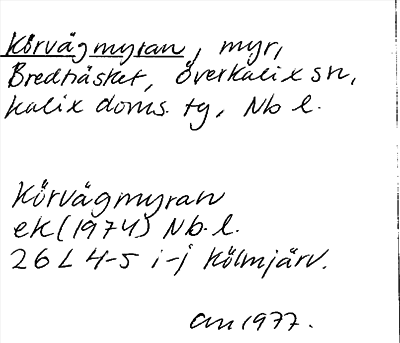 Körvägmyran, myr,
Bredträsket, Överkalix sn,
Kalix doms. tg, Nb l.
Körvägmyran
ek (1974) Nb. l.
26 L 4-5 i-j Kölmjärv.
an 1977.